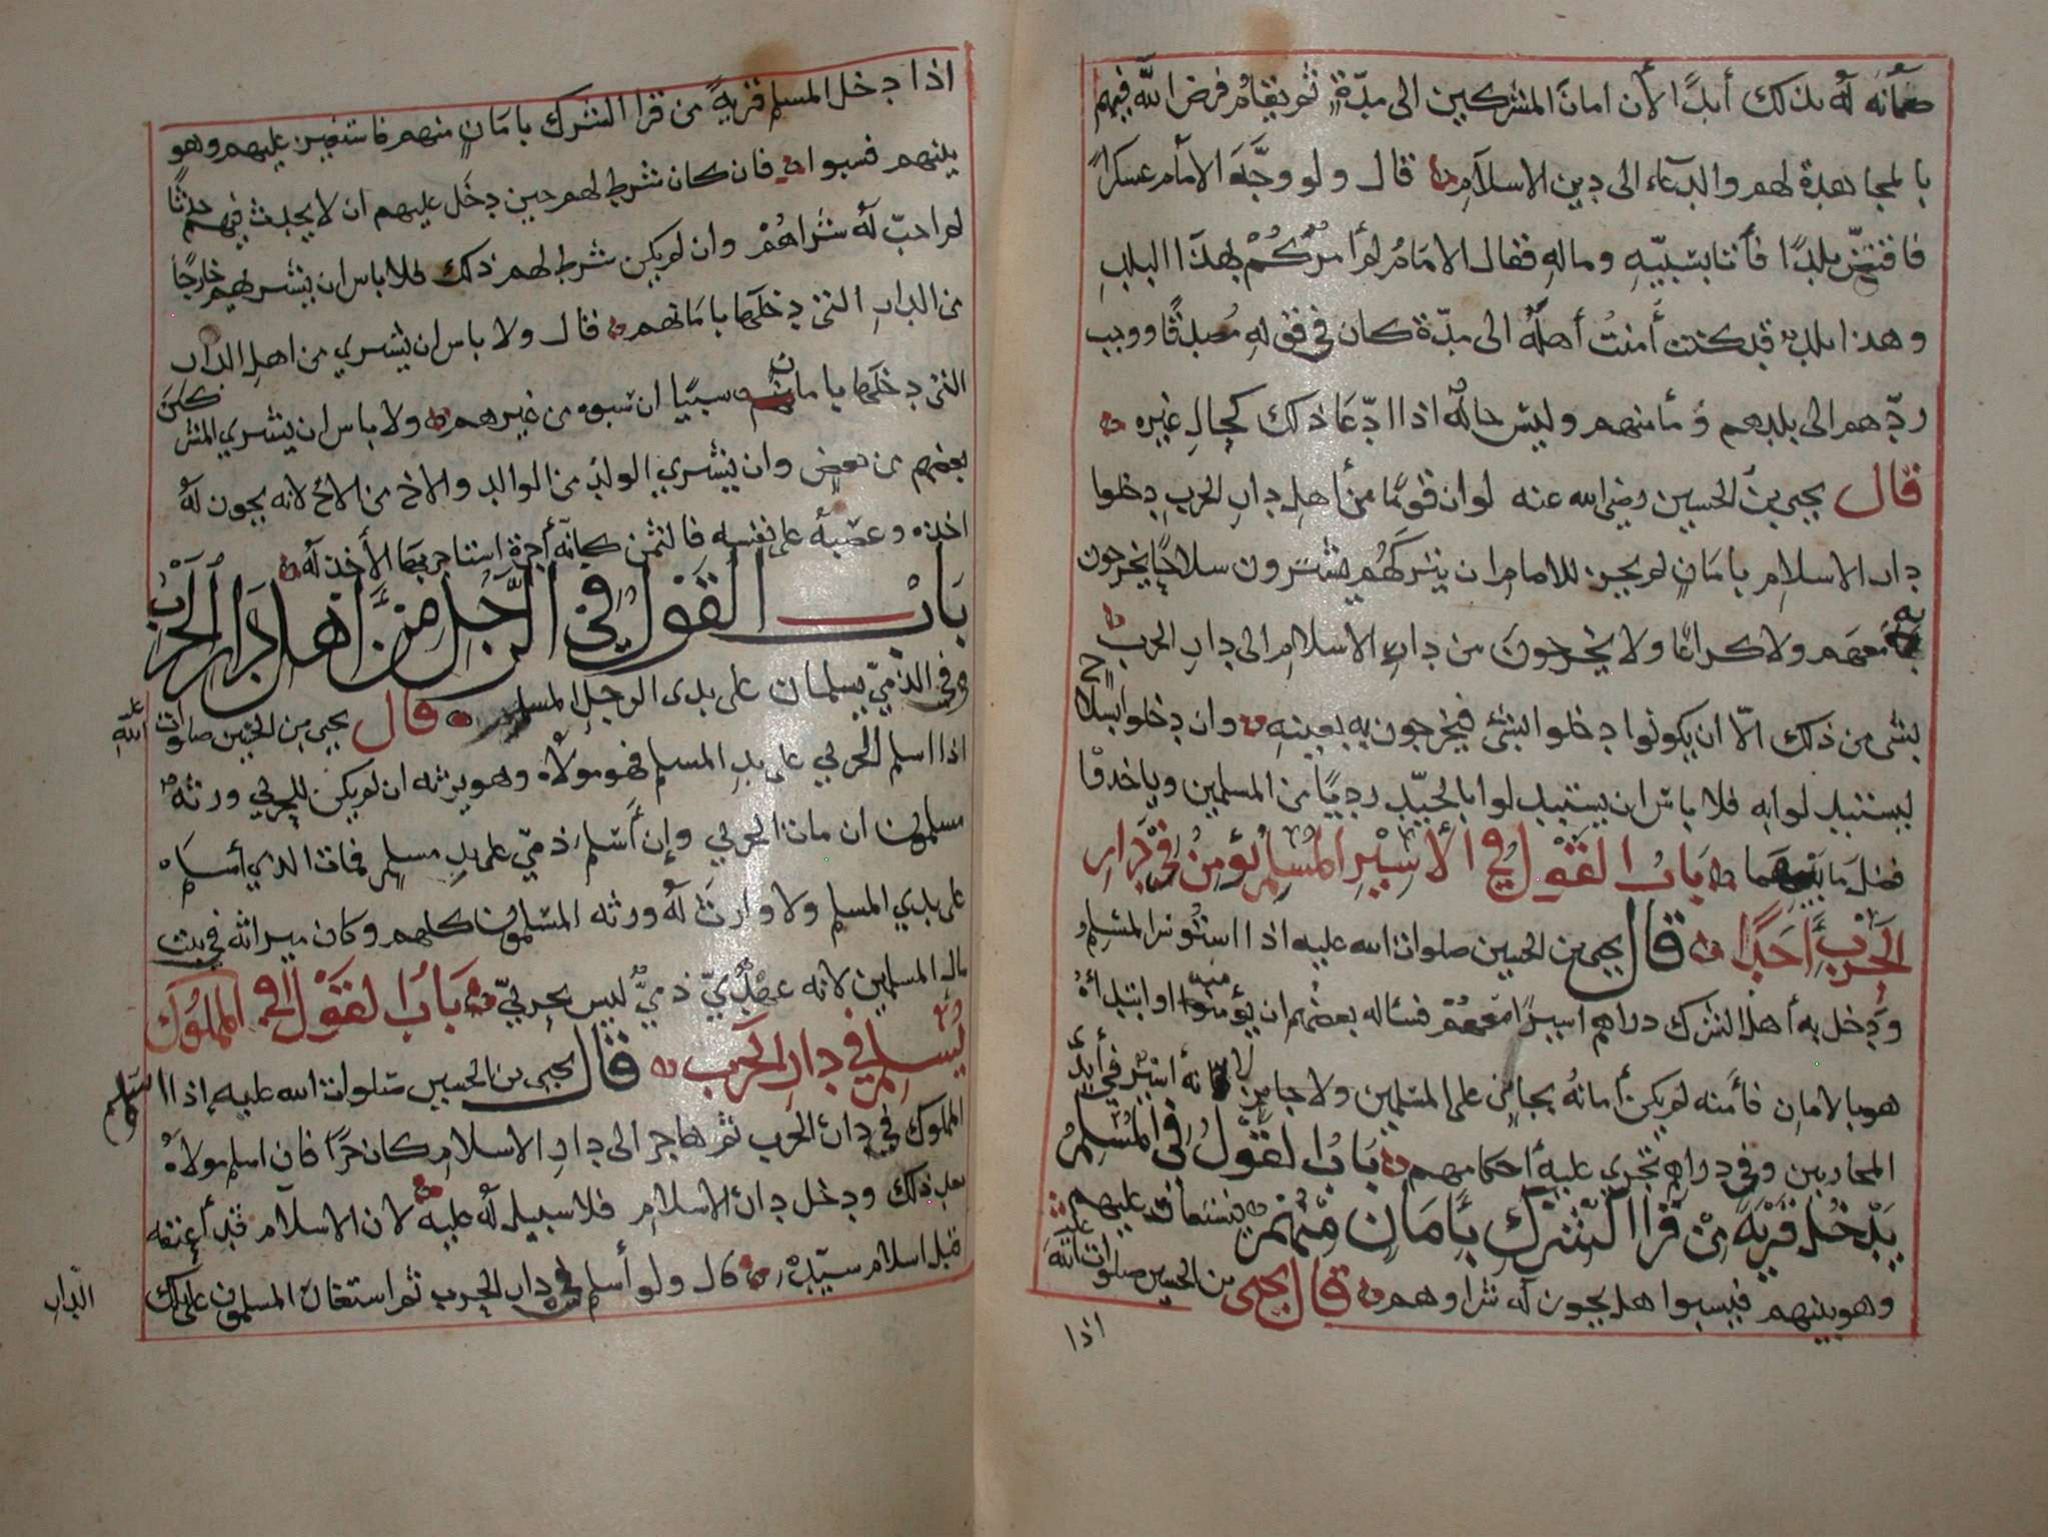 ضمانه له بذلك أبدًا لأن امان المشركين الى مدّة ثم يقام فرض الله فيهم
بالمجاهدة لهم والدعاء الى دين الاسلام قال ولو وجّه الامام عسكرا
فافتتح بلدًا فأتا بسبيه وماله فقال الامام لم أمركم بهذا البلد
وهذا بلد قد كنت أمنت أهله الى مدّة كان في قوله مصدقًا ووجب
ردّهم الى بلدهم ومأمنهم وليس حاله اذا ادّعا ذلك كحال غيره
قال يحيى بن الحسين رضي الله عنه لو ان قومًا من أهل دار الحرب دخلوا
دار الاسلام بامان لم يجز للامام ان يتركهم يشترون سلاحًا يخرجون
به معهم ولا كراعًا ولا يخرجون من دار الاسلام الى دار الحرب
بشي من ذلك الّا ان يكونوا دخلوا بشي فيخرجون به بعينه وان دخلوا بسلاح
ليستبدلوا به فلا باس ان يستبدلوا بالجيّد رديًا من المسلمين وياخذوا
فضل ما بينهما باب القول في الأسير المسلم يؤمن في دار
الحرب أحدًا قال يحيى بن الحسين صلوات الله عليه اذا استؤسر المسلم
ودخل به أهل الشرك دراهم اسيرًا معهم فسأله بعضهم ان يؤمنه او ابتدأه
هو بالامان فأمنه لم يكن أمانه بجائز على المسلمين ولا جا من لانه أسير في أيدي
المحاربين وفي دراهم تجري عليه أحكامهم باب القول في المسلم
يدخل قرية من قرا الشرك بأمان منهم فيستغار عليهم
وهو بينهم فيسبوا هل يجوز له شراوهم قال يحيى بن الحسين صلوات الله عليه
اذا
اذا دخل المسلم قرية من قرا الشرك بامان منهم فاستغير عليهم وهو
بينهم فسبوا فان كان شرط لهم حين دخل عليهم ان لا يحدث فيهم حدثًا
لم احبّ له شراهم وان لم يكن شرط لهم ذلك فلا باس ان يشريهم خارجًا
من الدار التي دخلها بامانهم قال ولا باس ان يشري من اهل الدار
التي دخلها بامان سبيًا ان سبوه من غيرهم ولا باس ان يشري المشركين
بعضهم من بعض وان يشري الولد من الوالد والاخ من الاخ لانه يجوز له
اخذه وغصبه على نفسه فالثمن كانه أجرة استاجر بها لأخذ له
باب القول في الرجل من اهل دار الحرب
وفي الذمي يسلمان على يدى الرجل المسلم قال يحيى بن الحسين صلوات الله عليه
اذا اسلم الحربي على يد المسلم فهو مولاه وهو يرثه ان لم يكن للحربي ورثه
مسلمون ان مات الحربي وإن أسلم ذمّي على يد مسلم فمات الذي أسلم
على يدي المسلم ولا وارث له ورثه المسلمون كلهم وكان ميراثه في بيت
مال المسلمين لانه ذميّ ليس بحربيّ باب القول في المملوك
يسلم في دار الحرب قال يحيى بن الحسين صلوات الله عليه إذا اسلم
المملوك في دار الحرب ثم هاجر الى دار الاسلام كان حرًا فان اسلم مولاه
بعد ذلك ودخل دار الاسلام فلا سبيل له عليه لان الاسلام قد أعتقه
قبل اسلام سيّده قال ولو أسلم في دار الحرب ثم استغار المسلمون على تلك
الدار